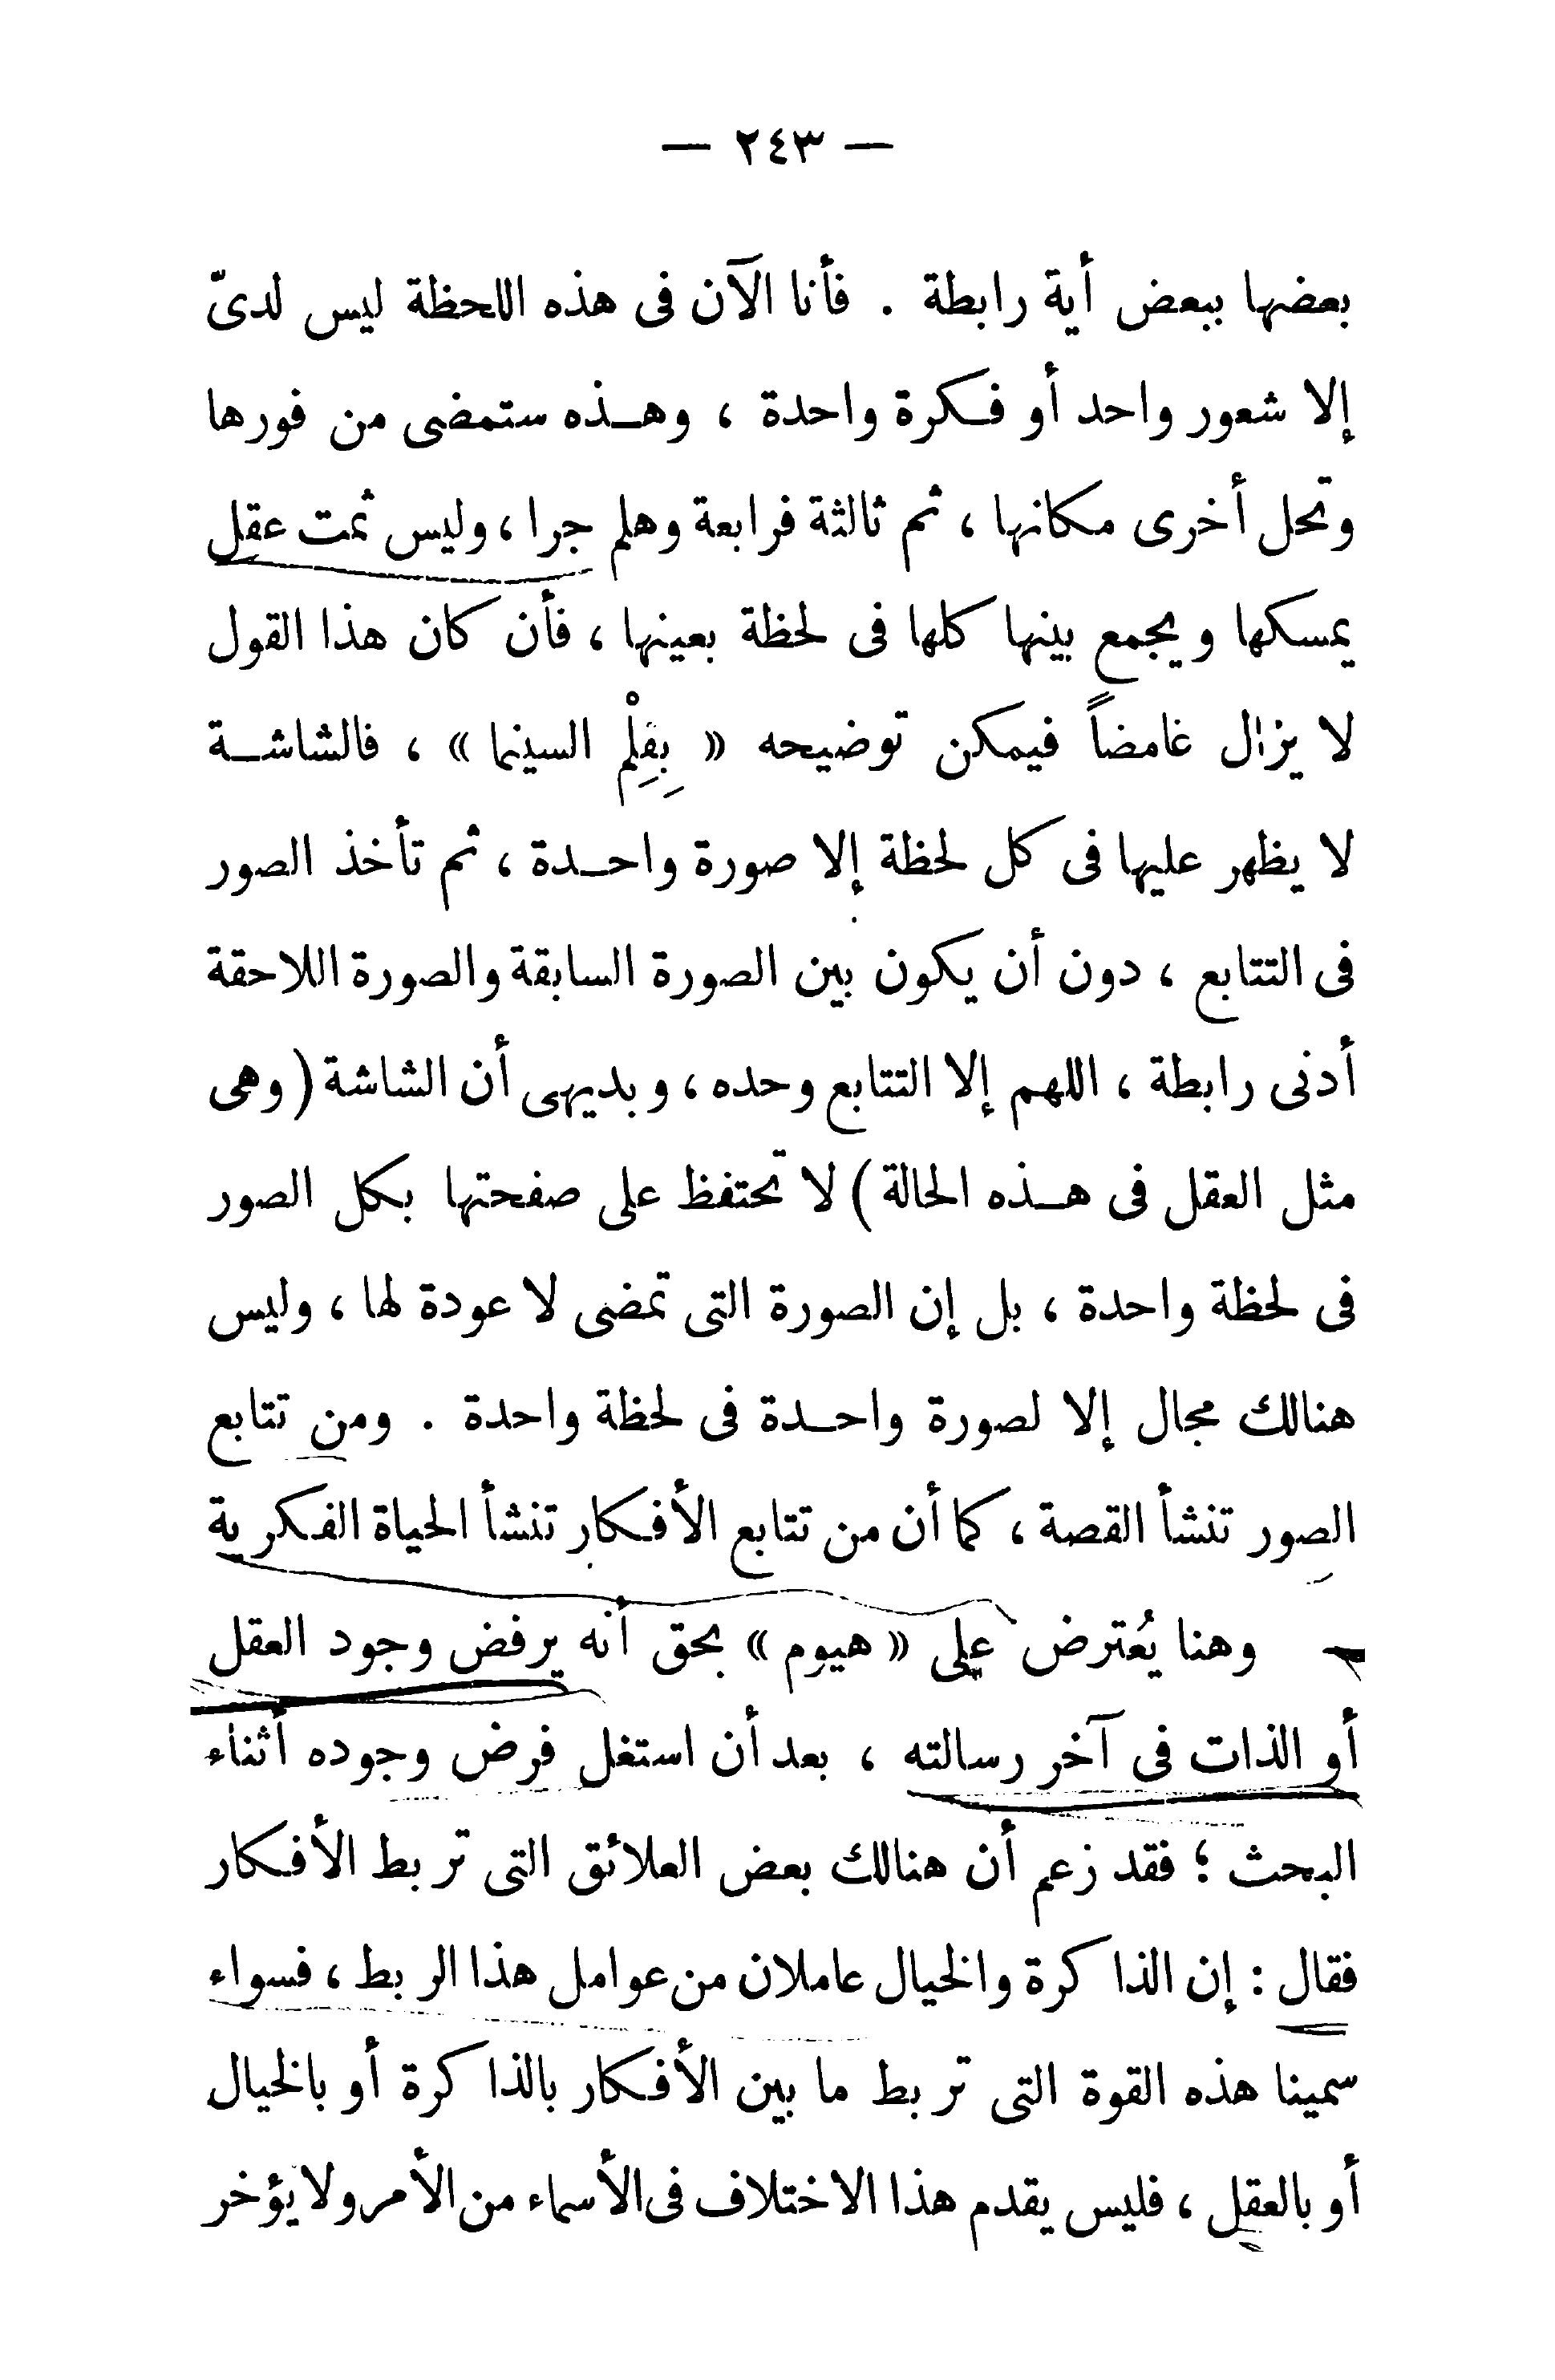 — ٢٤٣ —
بعضها ببعض أية رابطة . فأنا الآن فى هذه اللحظة ليس لدىّ
إلا شعور واحد أو فكرة واحدة ، وهذه ستمضى من فورها
وتحل أخرى مكانها ، ثم ثالثة فرابعة وهلم جرا ، وليس ثمت عقل
يمسكها ويجمع بينها كلها فى لحظة بعينها ، فأن كان هذا القول
لا يزال غامضاً فيمكن توضيحه « بِفِلْم السينما » ، فالشاشة
لا يظهر عليها فى كل لحظة إلا صورة واحدة ، ثم تأخذ الصور
فى التتابع ، دون أن يكون بين الصورة السابقة والصورة اللاحقة
أدنى رابطة ، اللهم إلا التتابع وحده ، وبديهى أن الشاشة ( وهى
مثل العقل فى هذه الحالة ) لا تحتفظ على صفحتها بكل الصور
فى لحظة واحدة ، بل إن الصورة التى تمضى لا عودة لها ، وليس
هنالك مجال إلا لصورة واحدة فى لحظة واحدة . ومن تتابع
الصور تنشأ القصة ، كما أن من تتابع الأفكار تنشأ الحياة الفكرية
وهنا يُعترض على « هيوم » بحق أنه يرفض وجود العقل
أو الذات فى آخر رسالته ، بعد أن استغل فرض وجوده أثناء
البحث ؛ فقد زعم أن هنالك بعض العلائق التى تربط الأفكار
فقال : إن الذاكرة والخيال عاملان من عوامل هذا الربط ، فسواء
سمينا هذه القوة التى تربط ما بين الأفكار بالذاكرة أو بالخيال
أو بالعقل ، فليس يقدم هذا الاختلاف فى الأسماء من الأمر ولا يؤخر